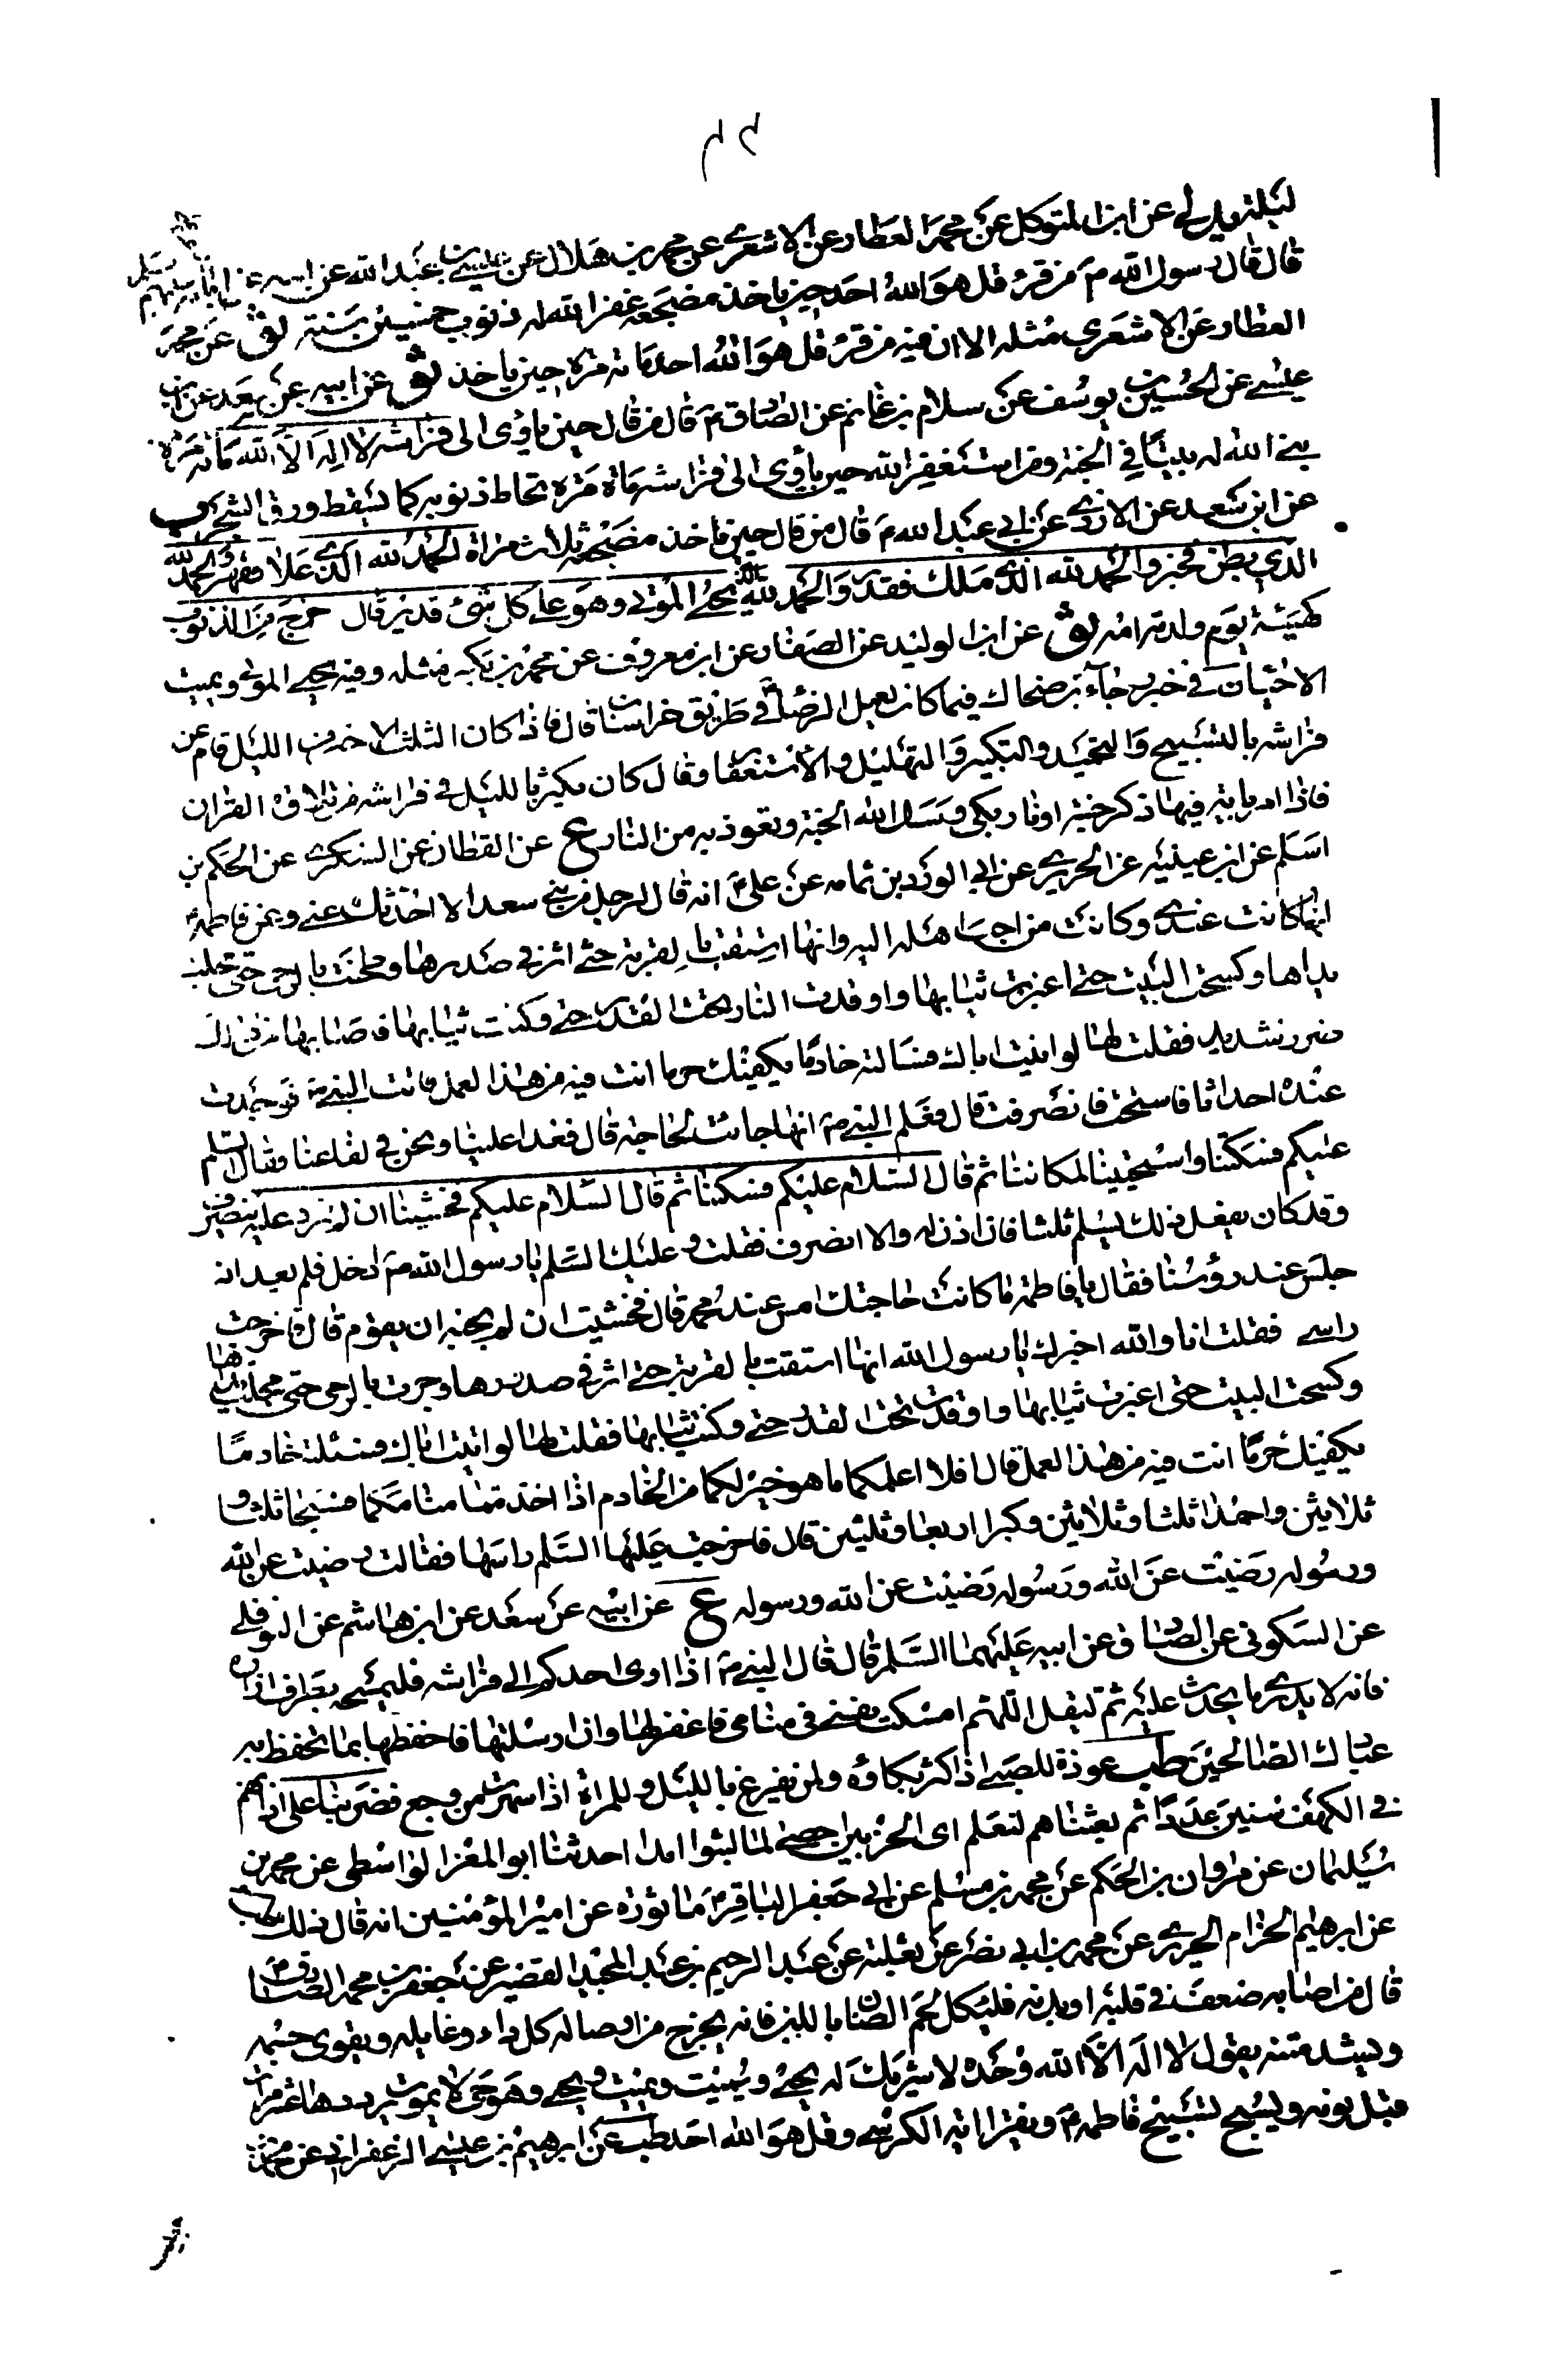 ليلته يد لى عن ابن المتوكل عن محمد العطار عن الاشعرى عن محمد بن هلال عن عيسى بن عبدالله عن ابيه عن
قال قال رسول الله ص من قرء قل هو الله احد حين ياخذ مضجعه غفر الله له ذنوب خمسين سنة ثو عن محمد
العطار عن الاشعرى مثله الا ان فيه من قرء قل هو الله احد مائة مرة حين ياخذ ثو عن ابيه عن سعد عن ابن
عيسى عن الحسين بن يوسف عن سلام بن غانم عن الصادق ع قال من قال حين ياوى الى فراشه لا اله الا الله مائة مرة
بنى الله له بيتا فى الجنة ومن استغفر الله حين يأوى الى فراشه مائة مرة تحاط ذنوبه كما يسقط ورق الشجر
عن ابن سعيد عن الازدى عن ابى عبدالله ع قال من قال حين ياخذ مضجعه ثلاث مراة الحمد لله الذى علا فقهر والحمد لله
الذى بطن فخبر والحمد لله الذى ملك فقدر والحمد لله الذى يحى الموتى وهو على كل شئ قدير قال خرج من الذنوب
كهيئة يوم ولدته امه ثو عن ابن الوليد عن الصفار عن ابن معروف عن محمد بن بكير مثله وفيه يحيى الموتى ويميت
الاحياء ن فى خبر رجاء بن ضحاك فيما كان يعمل الرضا ع فى طريق خراسان قال فاذا كان الثلث الاخير من الليل قام عن
فراشه بالتسبيح والتحميد والتكبير والتهليل والاستغفار وقال كان يكثر بالليل فى فراشه من تلاوة القران
فاذا مر باية فيها ذكر جنة او نار بكى وسئل الله الجنة وتعوذ به من النار ع عن القطان عن السكرى عن الحكم بن
اسلم عن ابن عيينه عن الحريرى عن ابى الورد بن ثمامه عن على ع انه قال لرجل من بنى سعد الا احدثك عنى وعن فاطمة
انها كانت عندى وكانت من احب اهله اليه وانها استقت بالقربة حتى اثر فى صدرها وطحنت بالرحى حتى مجلت
يداها وكسحت البيت حتى اغبرت ثيابها واوقدت النار تحت القدر حتى دكنت ثيابها فاصابها من ذلك
ضرر شديد فقلت لها لو اتيت اباك فسالته خادما يكفيك حر ما انت فيه من هذا العمل فاتت النبى ص فوجدت
عنده احداثا فاستحت فانصرفت قال فعلم النبى ص انها جائت لحاجة قال فغدا علينا ونحن فى لفاعنا فقال السلم
عليكم فسكتنا واستحيينا لمكاننا ثم قال السلام عليكم فسكتنا ثم قال السلام عليكم فخشينا ان لم نرد عليه ينصرف
وقد كان يفعل ذلك يسلم ثلثا فان اذن له والا انصرف فقلت و عليك السلم يا رسول الله ص ادخل فلم يعد ان
جلس عند رؤسنا فقال يا فاطمة ما كانت حاجتك امس عند محمد قال فخشيت ان لم نجبه ان يقوم قال فاخرجت
راسى فقلت انا والله اخبرك يا رسول الله انها استقت بالقربة حتى اثر فى صدرها وجرت بالرحى حتى مجلت يداها
وكسحت البيت حتى اغبرت ثيابها واوقدت تحت القدر حتى دكنت ثيابها فقلت لها لو اتيت اباك فسئلته خادما
يكفيك حر ما انت فيه من هذا العمل قال افلا اعلمكما ما هو خير لكما من الخادم اذا اخذتما منامكما فسبحا ثلثا و
ثلاثين واحمدا ثلثا وثلاثين وكبرا اربعا وثلثين قال فاخرجت عليها السلم راسها فقالت رضيت عن الله
ورسوله رضيت عن الله ورسوله رضيت عن الله ورسوله ع عن ابيه عن سعد عن ابن هاشم عن النوفلى
عن السكونى عن الصادق عن ابيه عليهما السلم قال قال النبى ص اذا اوى احدكم الى فراشه فليمسحه بطرف ازاره
فانه لا يدرى ما يحدث عليه ثم ليقل اللهم ان امسكت نفسى فى منامى فاغفر لها وان ارسلتها فاحفظها بما تحفظ به
عبادك الصالحين طب عوذة للصبى اذا كثر بكاؤه ولمن يفزع بالليل وللمراة اذا سهرت من وجع فضربنا على اذانهم
فى الكهف سنين عددا ثم بعثناهم لنعلم اى الحزبين احصى لما لبثوا امدا حدثنا ابو المغرا الواسطى عن محمد بن
سليمان عن مروان بن الحكم عن محمد بن مسلم عن ابى جعفر الباقر ع ماثورة عن امير المؤمنين انه قال ذلك طب
عن ابرهيم الحزام الحريرى عن محمد بن ابى نصر عن ثعلبة عن عبد الرحيم بن عبد المجيد القصير عن جعفر بن محمد الصادق ع
قال من اصابه ضعف فى قلبه او بدنه فلياكل لحم الضان باللبن فانه يخرج من اوصاله كل داء وغايله ويقوى جسمه
ويشد متنه يقول لا اله الا الله وحده لا شريك له يحى ويميت ويميت ويحيى وهو حى لا يموت يرددها عشر مرات
قبل نومه ويسبح تسبيح فاطمه ع ويقرا اية الكرسى وقل هو الله احد طب عن ابرهيم بن عيسى الزعفرانى عن محمد